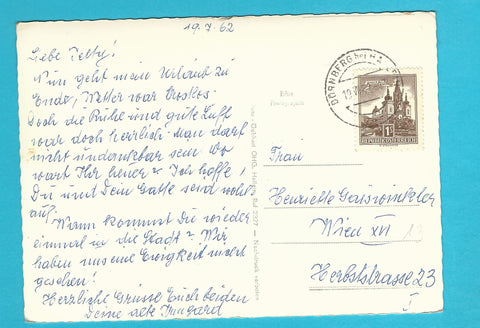 19.7.62
Liebe Fetty!
Nun geht mein Urlaub zu
Ende, Wetter war trostlos.
Doch die Ruhe und gute Luft
war doch herrlich. Man darf
nicht undankbar sein. Wo
wart Ihr heuer? Ich hoffe,
Du und Dein Gatte seid wohl-
auf.
Wann kommst Du wieder
einmal in die Stadt? Wir
haben uns eine Ewigkeit nicht
gesehen!
Herzliche Grüsse Euch beiden
Deine alte Irmgard
Echte
Photographie
Nachdruck verboten
DÜRNBERG BEI HALLEIN
REPUBLIK ÖSTERREICH
Frau
Henriette
Wien XVI
Herbststrasse 23